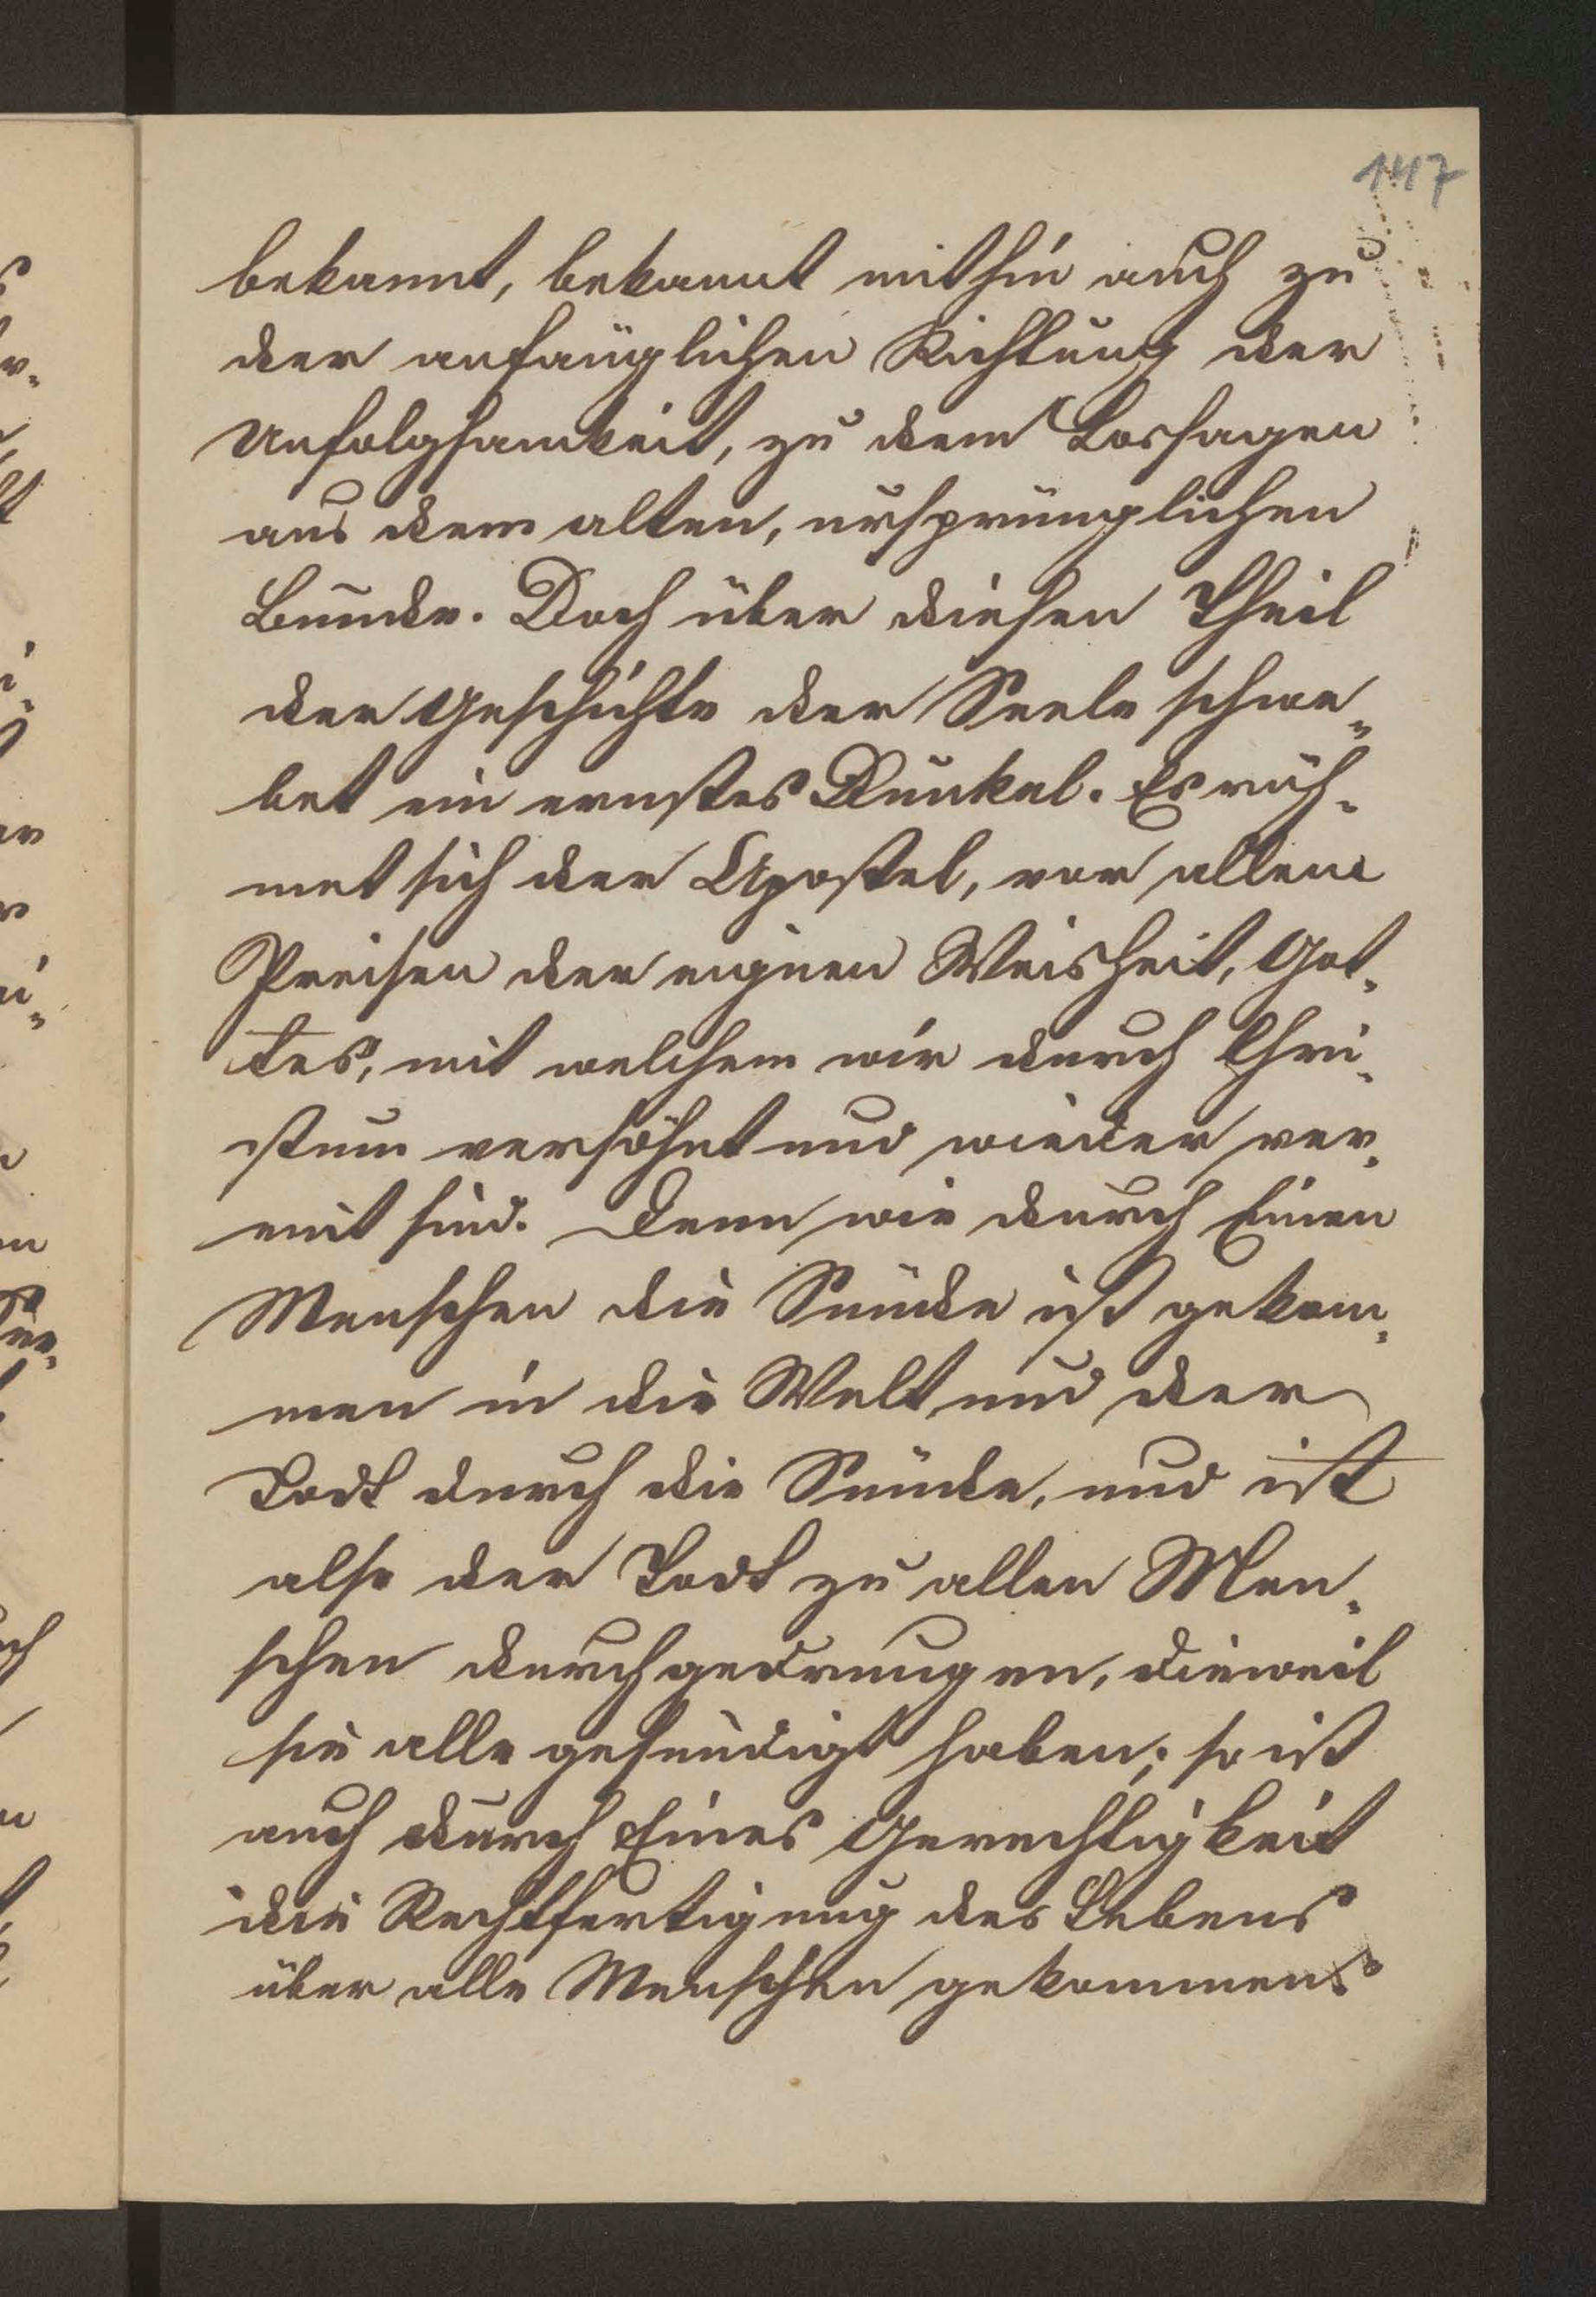 147
bekannt, bekannt mithin auch zu
der anfänglichen Richtung der
Unfolgsamkeit, zu dem Lossagen
aus dem alten, ursprünglichen
Bunde. Doch über diesen Theil
der Geschichte der Seele schwe-
bet ein ernstes Dunkel. Es rüh-
met sich der Apostel, vor allem
Preisen der eignen Weisheit, Got-
tes, mit welchem wir durch Chri-
stum versöhnt und wieder ver-
eint sind. Denn wie durch Einen
Menschen die Sünde ist gekom-
men in die Welt und der
Todt durch die Sünde, und ist
also der Todt zu allen Men-
schen durchgedrungen, dieweil
sie alle gesündigt haben; so ist
auch durch Eines Gerechtigkeit
die Rechtfertigung des Lebens
über alle Menschen gekommen.